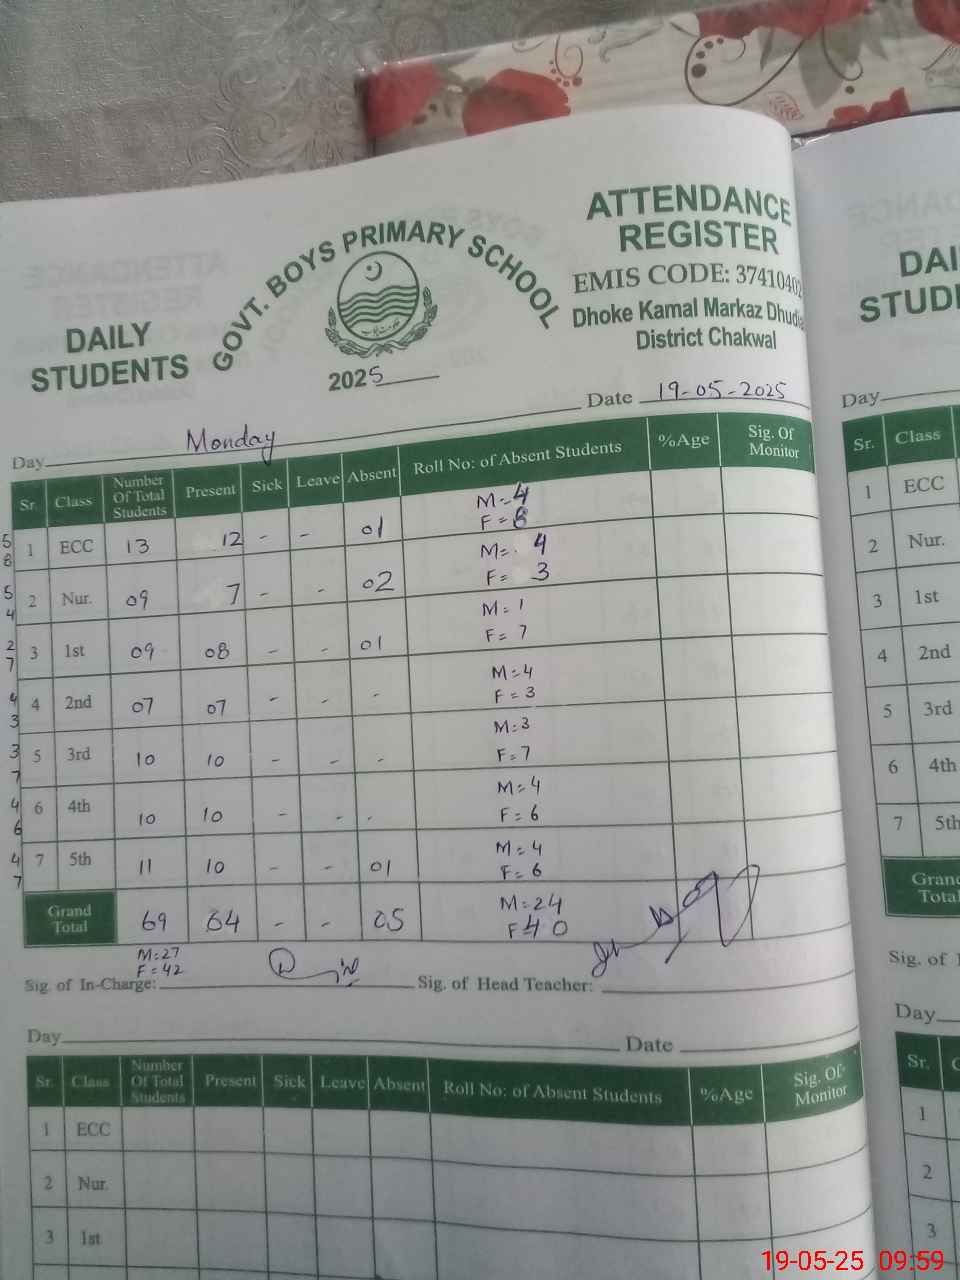 GOVT. BOYS PRIMARY SCHOOL
DAILY
STUDENTS
2025
ATTENDANCE
REGISTER
EMIS CODE: 37410402
Dhoke Kamal Markaz
District Chakwal
Day Monday Date 19-05-2025
Sr. Class Number Of Total Students Present Sick Leave Absent Roll No: of Absent Students %Age Sig. Of Monitor
5 8 1 ECC 13 12 - - 01 M=4 F=8
5 4 2 Nur. 09 7 - - 02 M=4 F=3
2 7 3 1st 09 08 - - 01 M=1 F=7
4 3 4 2nd 07 07 - - - M=4 F=3
3 7 5 3rd 10 10 - - - M=3 F=7
4 6 6 4th 10 10 - - - M=4 F=6
4 7 7 5th 11 10 - - 01 M=4 F=6
Grand Total 69 64 - - 05 M=24 F=40
M=27
F=42
Sig. of In-Charge: Sig. of Head Teacher:
Day Date
Sr. Class Number Of Total Students Present Sick Leave Absent Roll No: of Absent Students %Age Sig. Of Monitor
1 ECC
2 Nur.
3 1st
DAI
STUDE
Day
Sr. Class
1 ECC
2 Nur.
3 1st
4 2nd
5 3rd
6 4th
7 5th
Grand
Total
Sig. of
Day
Sr.
1
2
3
19-05-25 09:59